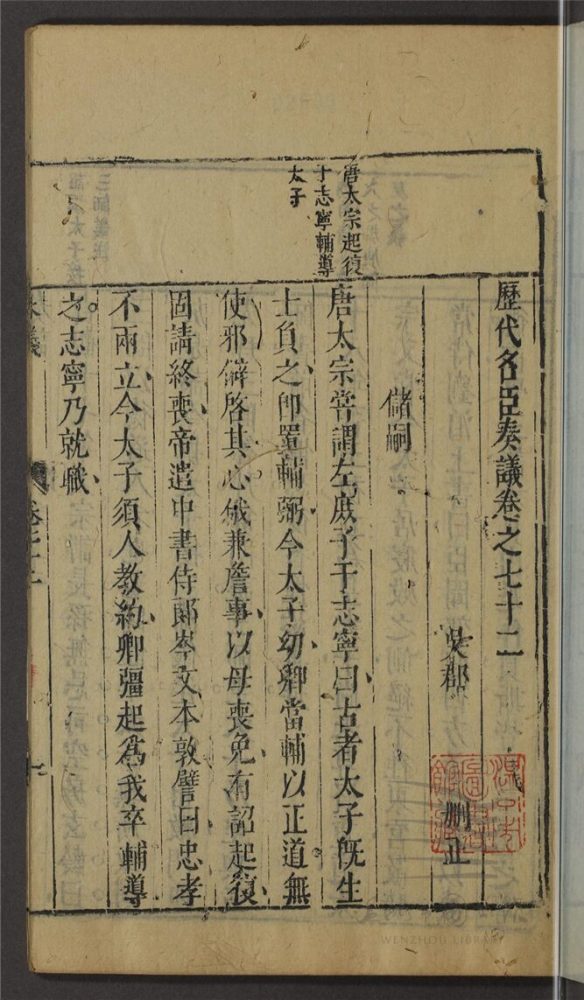 歷代名臣奏議卷之七十二
吳郡
刪正
儲嗣
唐太宗起復
于志寧輔導
太子
唐太宗嘗謂左庶子于志寧曰古者太子旣生
士負之卽置輔弼今太子幼卿當輔以正道無
使邪僻啓其心俄兼詹事以母喪免有詔起復
固請終喪帝遣中書侍郞岑文本敦譬曰忠孝
不兩立今太子須人教約卿彊起爲我卒輔導
之志寧乃就職
WENZHOU LIBRARY